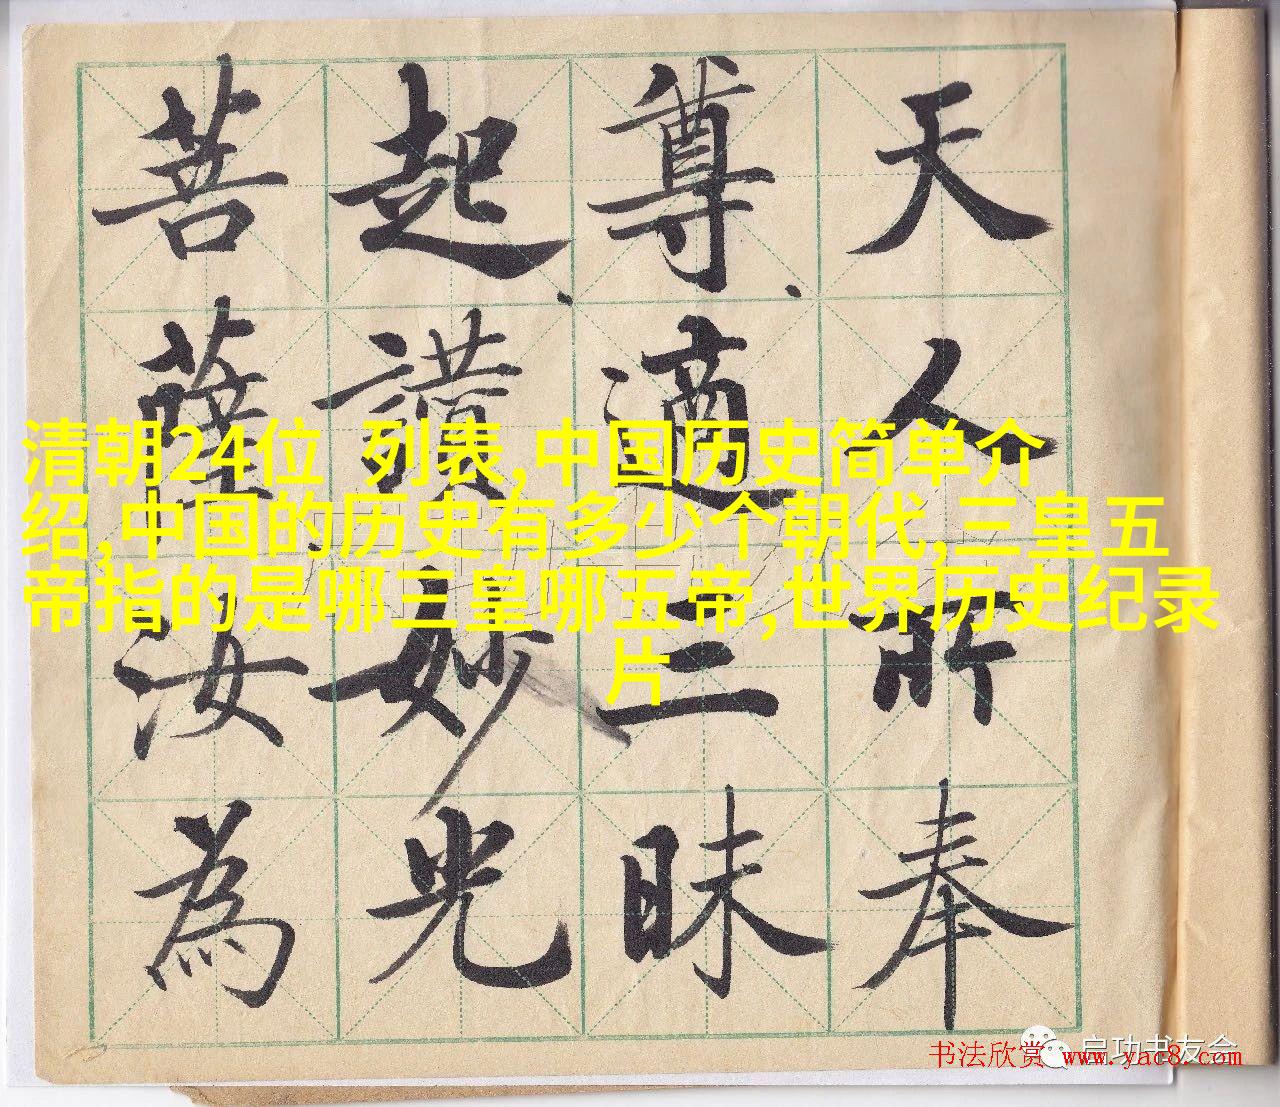 天人所奉
尊適三昧
起讃妙光
菩薩汝為
清朝24位 列表,中国历史简单介
绍,中国的历史有多少个朝代,三皇五
帝指的是哪三皇哪五帝,世界历史纪录
片
启功书友会
书法欣赏 www.yac8.com